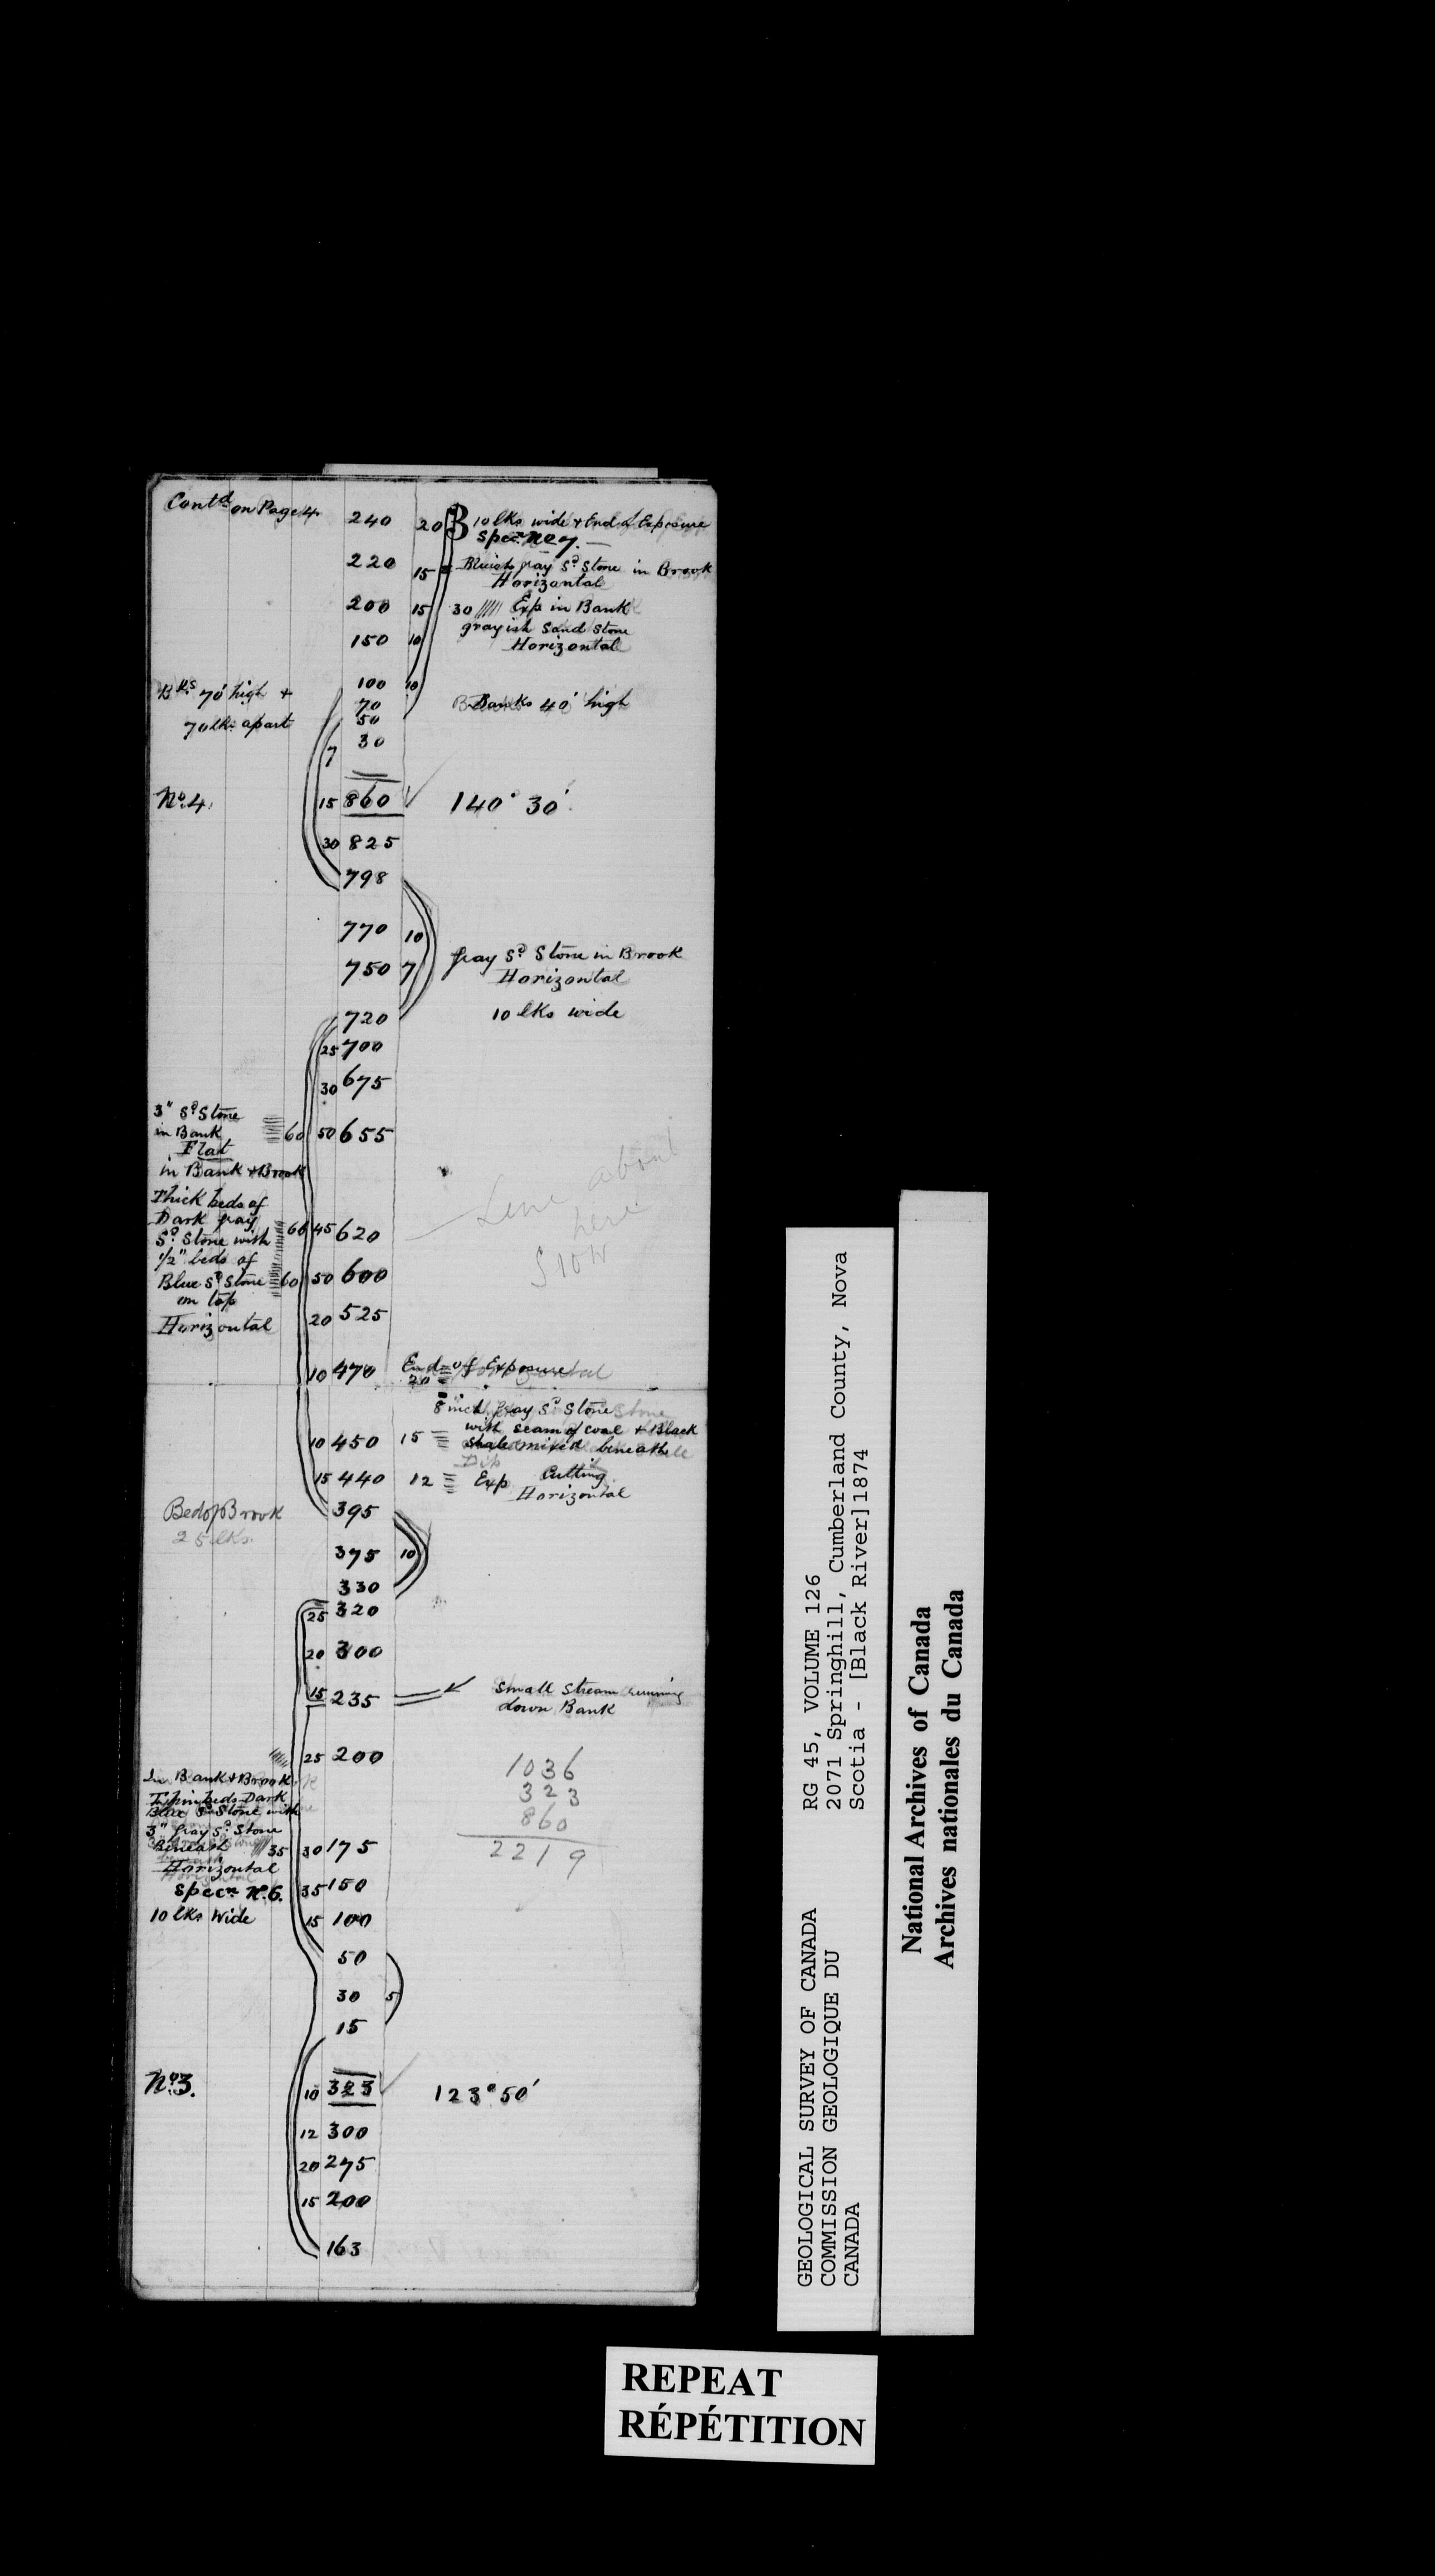 Contd on Page 4.
240 20 B 10 lks wide + End of Exposure
Specn No 7.
220 15 Bluish gray Sd Stone in Brook
Horizontal
200 15 30 Exp in Bank
grayish Sand Stone
150 10 Horizontal
100 10
Bks 70' high +
70 Banks 40' high
70 lks apart 50
7 30
No. 4. 15 860 140° 30'
30 825
798
770 10
gray Sd Stone in Brook
750 7 Horizontal
10 lks wide
720
25 700
30 675
3" Sd Stone
in Bank 60 50 655
Flat
in Bank + Brook
Thick beds of
Dark gray 60 45 620
Line about
here
S 10 W
Sd Stone with
1/2" beds of
Blue Sd Stone 60 50 600
on top
Horizontal 20 525
10 470 End of Exposure
20
8 inch gray Sd Stone
with seam of coal + Black
10 450 15 Shale mixed beneath
15 440 12 Exp Cutting
Horizontal
395
Bed of Brook
25 lks.
375 10
330
25 320
20 300
15 235 Small Stream running
down Bank
25 200
1036
323
860
2219
In Bank + Brook
Thin beds Dark
Blue Sd Stone with
3" gray Sd Stone
Beneath 35 30 175
Horizontal
Specn No. 6. 35 150
10 lks Wide 15 100
50
30 5
15
No. 3. 10 323 123° 50'
12 300
20 275
15 200
163
GEOLOGICAL SURVEY OF CANADA RG 45, VOLUME 126
COMMISSION GEOLOGIQUE DU 2071 Springhill, Cumberland County, Nova
CANADA Scotia - [Black River]1874
National Archives of Canada
Archives nationales du Canada
REPEAT
RÉPÉTITION